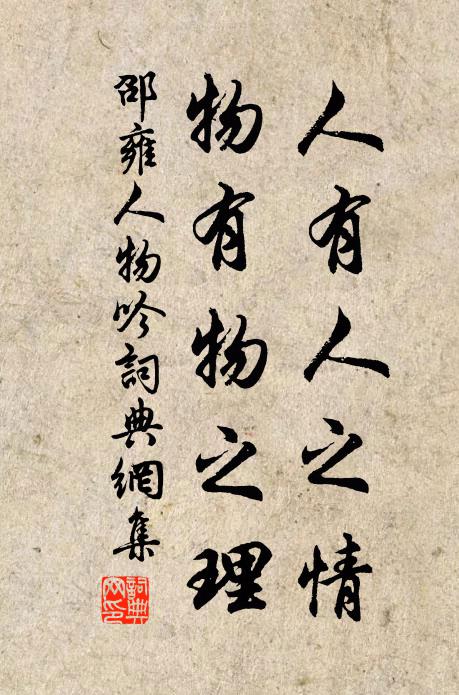 人有人之情
物有物之理
邵雍人物吟詞典網集
詞典
网印